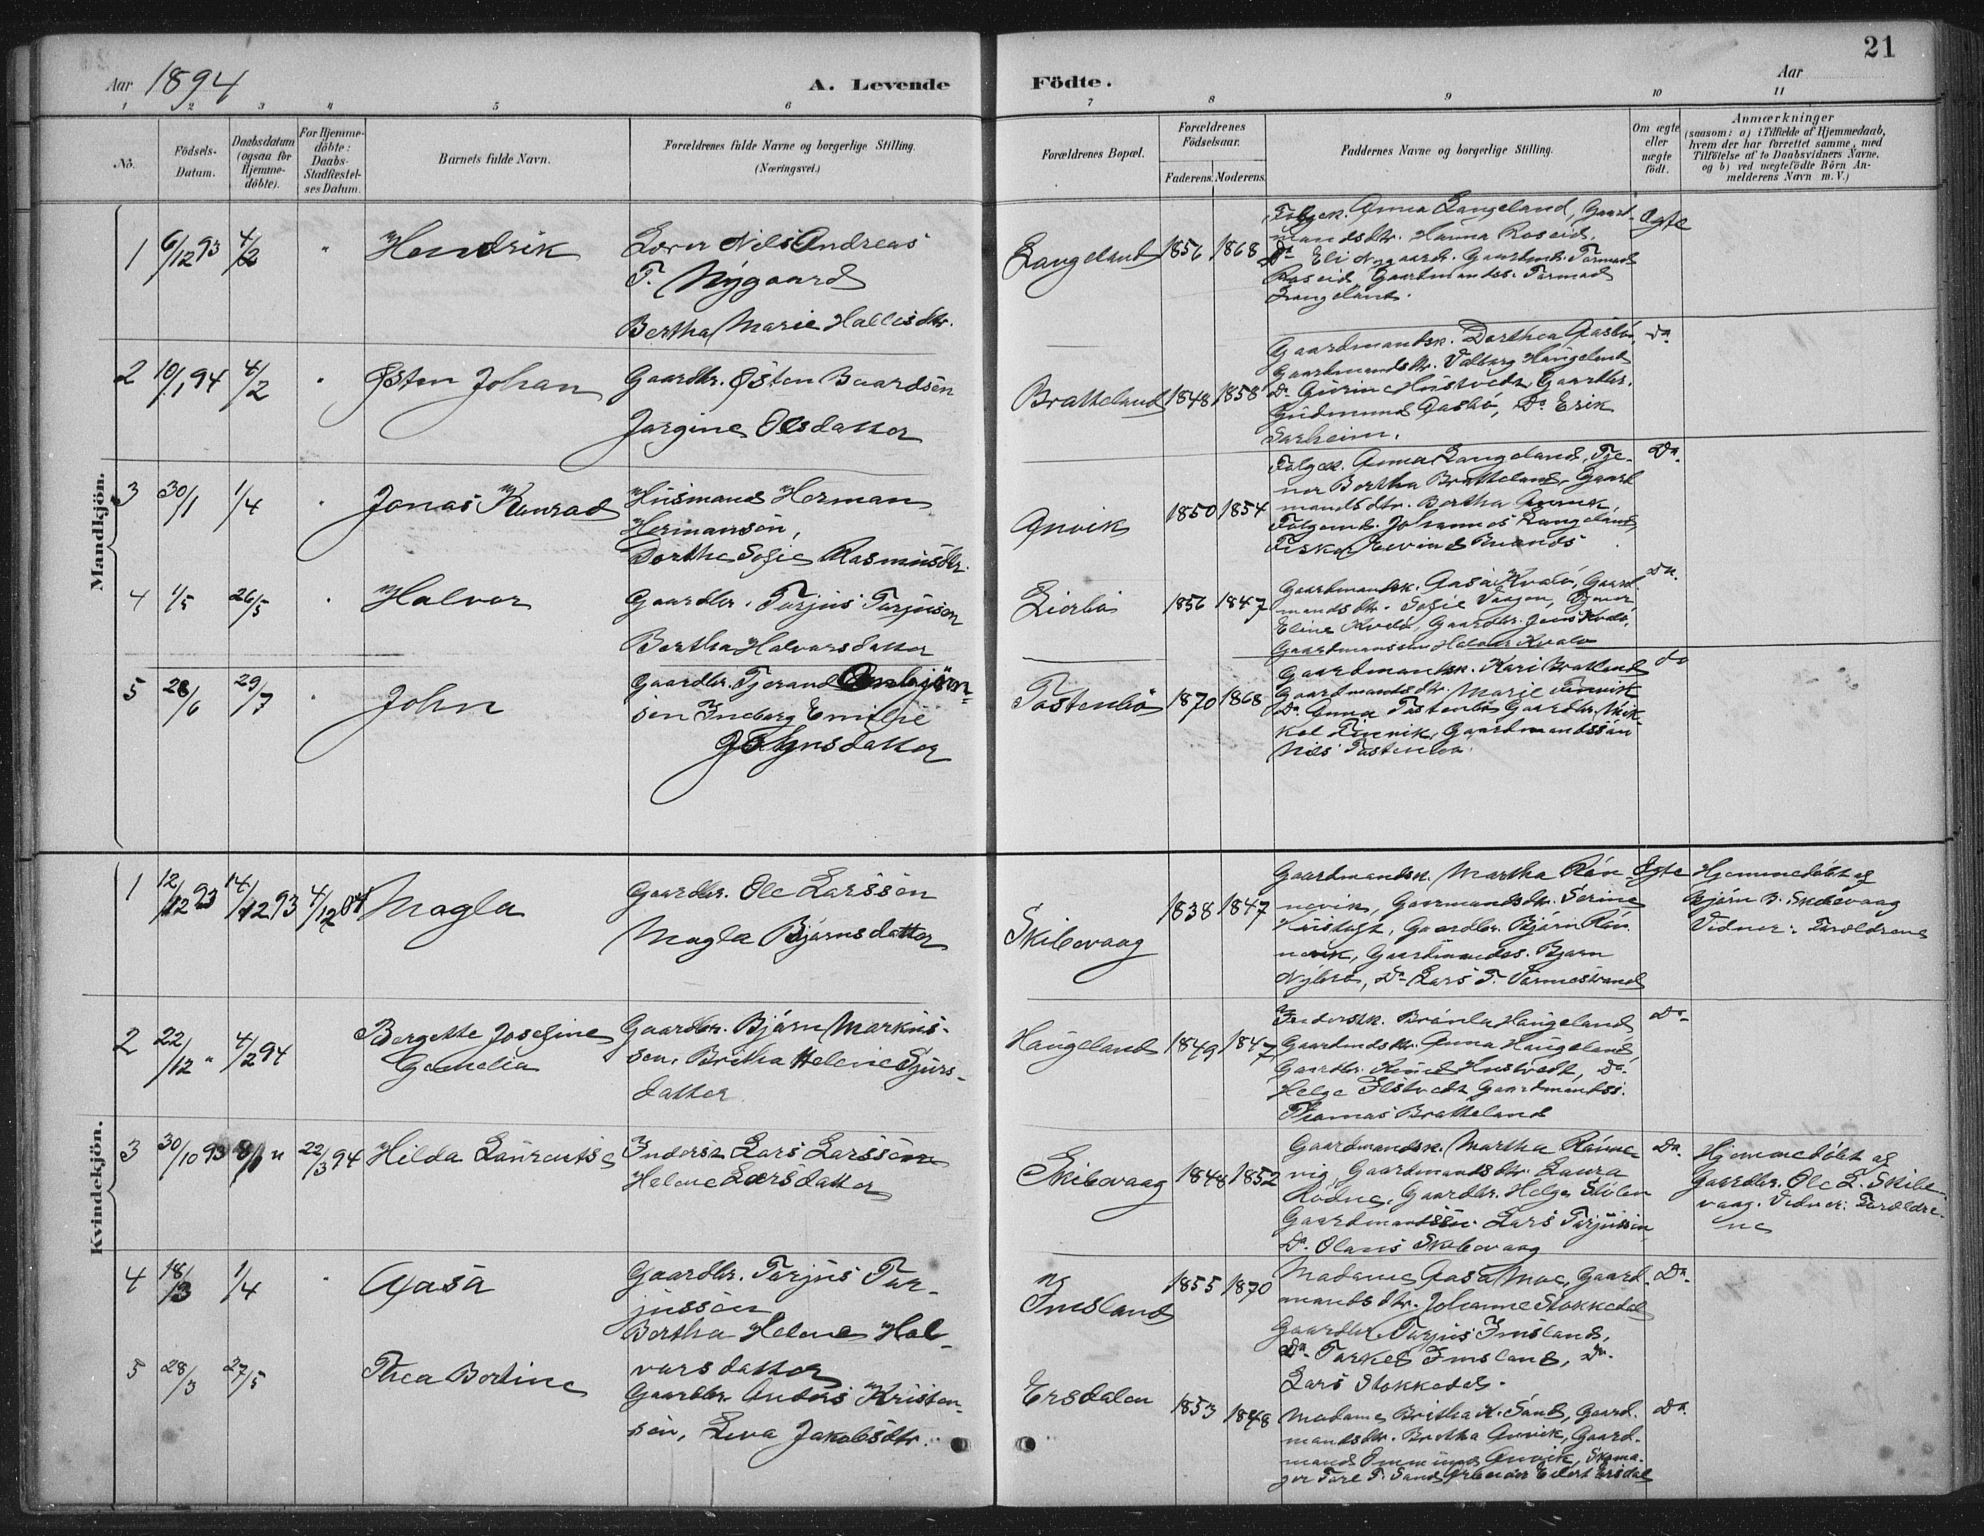 21
Aar 1894
A. Levende Födte.
Aar
1 2 3 4 5 6 7 8 9 10 11
No.
Födsels-
Datum.
Daabsdatum
(ogsaa for
Hjemme-
döbte).
For Hjemme-
döbte:
Daabs-
Stadfæstel-
ses Datum.
Barnets fulde Navn.
Forældrenes fulde Navne og borgerlige Stilling.
(Næringsvei.)
Forældrenes Bopæl.
Forældrenes
Födselsaar.
Faderens. Moderens.
Faddernes Navne og borgerlige Stilling.
Om ægte
eller
uægte
födt.
Anmærkninger
(saasom: a) i Tilfælde af Hjemmedaab,
hvem der har forrettet samme, med
Tilföielse af to Daabsvidners Navne,
og b) ved uægtefödte Börn An-
melderens Navn m. V.)
Mandkjön.
1 6/12 93 4/2 " Hendrik
Lærer Nils Andreas
T. Nygaard
Bertha Marie Hallisdtr.
Langeland 1856 1868
Anna Langeland, Gaard-
mandsdtr. Hanna Roseid,
Do Eli Nygaard. Gaardmds. Tormod
Roseid, Gaardmandss. Tormod
Langeland.
Ægte
2 10/1 94 4/2 " Østen Johan
Gaardbr. Østen Baardsen
Jorgine Olsdatter
Bratteland 1848 1858
Gaardmandsk. Dorthea Aasbö,
Gaardmandsdtr. Valborg Haugeland
Do Gurine Hustvedt, Gaardbr.
Gudmund Aasbö, Do Erik
Sørheim.
Do
3 30/1 1/4 " Jonas Konrad
Husmand Herman
Hermansen,
Dorthe Sofie Rasmusdtr.
Anvik 1850 1854
Anna Langeland, Tje-
ner Bertha Bratteland, Gaard
mandsdtr. Bertha Anvik,
Johannes Langeland,
Fisker Eivind
Do
4 1/5 26/5 " Halvor
Gaardbr. Torjus Torjusen
Bertha Halvorsdatter
Lierbö 1856 1847
Gaardmandsk. Aasa Kvalö, Gaard
mandsdtr. Sofie Vaagen, Tjener
Eline Kvalö, Gaardbr. Jens Kvalö,
Gaardmandssøn Halvor Kvalö
Do
5 28/6 29/7 " John
Gaardbr. Tjerand
sen Ingeborg Emilie
Johnsdatter
Tostenbö 1870 1868
Gaardmandsk. Kari
Gaardmandsdtr. Marie Finvik
Do Anna Tostenbö Gaardbr. Mik-
kel Finvik, Gaardmandssön
Nils Tostenbö.
do
Kvindekjön.
1 12/12 93 14/12 93 4/12 Magla
Gaardbr. Ole Larssen
Magla Bjørnsdatter
Skibevaag 1838 1847
Gaardmandsk. Martha Røn-
nevik, Gaarmandsdtr. Serine
Gaardbr. Bjørn Røn
nevik, Gaardmandss. Bjørn
Nybrö, Do Lars T. Vormestrand
Ægte
Hjemmedöbt af
Bjørn B. Skibevaag
Vidner: Forældrene
2 22/12 " 4/2 94 Bergette Josefine
Gemelia
Gaardbr. Bjørn Markus-
sen, Britha Helene Sjurs-
datter
Haugeland 1849 1847
Haugeland
Gaardmdsdtr. Anna Haugeland,
Gaardbr. Knud Hustvedt, Do
Helge Hustvedt Gaardmandss.
Thomas Bratteland
Do
3 30/10 93 22/3 94 Hilda Laurentse
Inderst Lars Larssen
Helene Larsdatter
Skibevaag 1848 1852
Gaardmandsk. Martha Rønne
vig Gaardmandsdtr. Laura
Rödne, Gaardbr. Helge Stölen
Gaardmandssön Lars Torjussen,
Do Olaus Skibevaag
Do
Hjemmedöbt af
Gaardbr. Ole L. Skibe
vaag. Vidner: Forældre-
ne
4 18/3 1/4 " Aasa
Gaardbr. Torjus Tor-
jussen
Bertha Helene Hal-
vorsdatter
Imsland 1855 1870
Madame Aasa Moe, Gaard-
mandsdtr. Johanne Stokkedal
Gaardbr. Torjus Imsland,
Do Torkel Imsland, Do
Lars Stokkedal.
Do
5 28/3 27/5 Thea Bertine
Gaardbr. Anders Kristen-
sen, Lena Jakobsdtr.
Ersdalen 1853 1848
Madame Britha K. Sand, Gaard-
mandsdtr. Bertha Anvik, Gaard-
mand Omund Anvik, Skoma-
ger Tore T. Sand, Arbeider Eilert Ersdal
Do